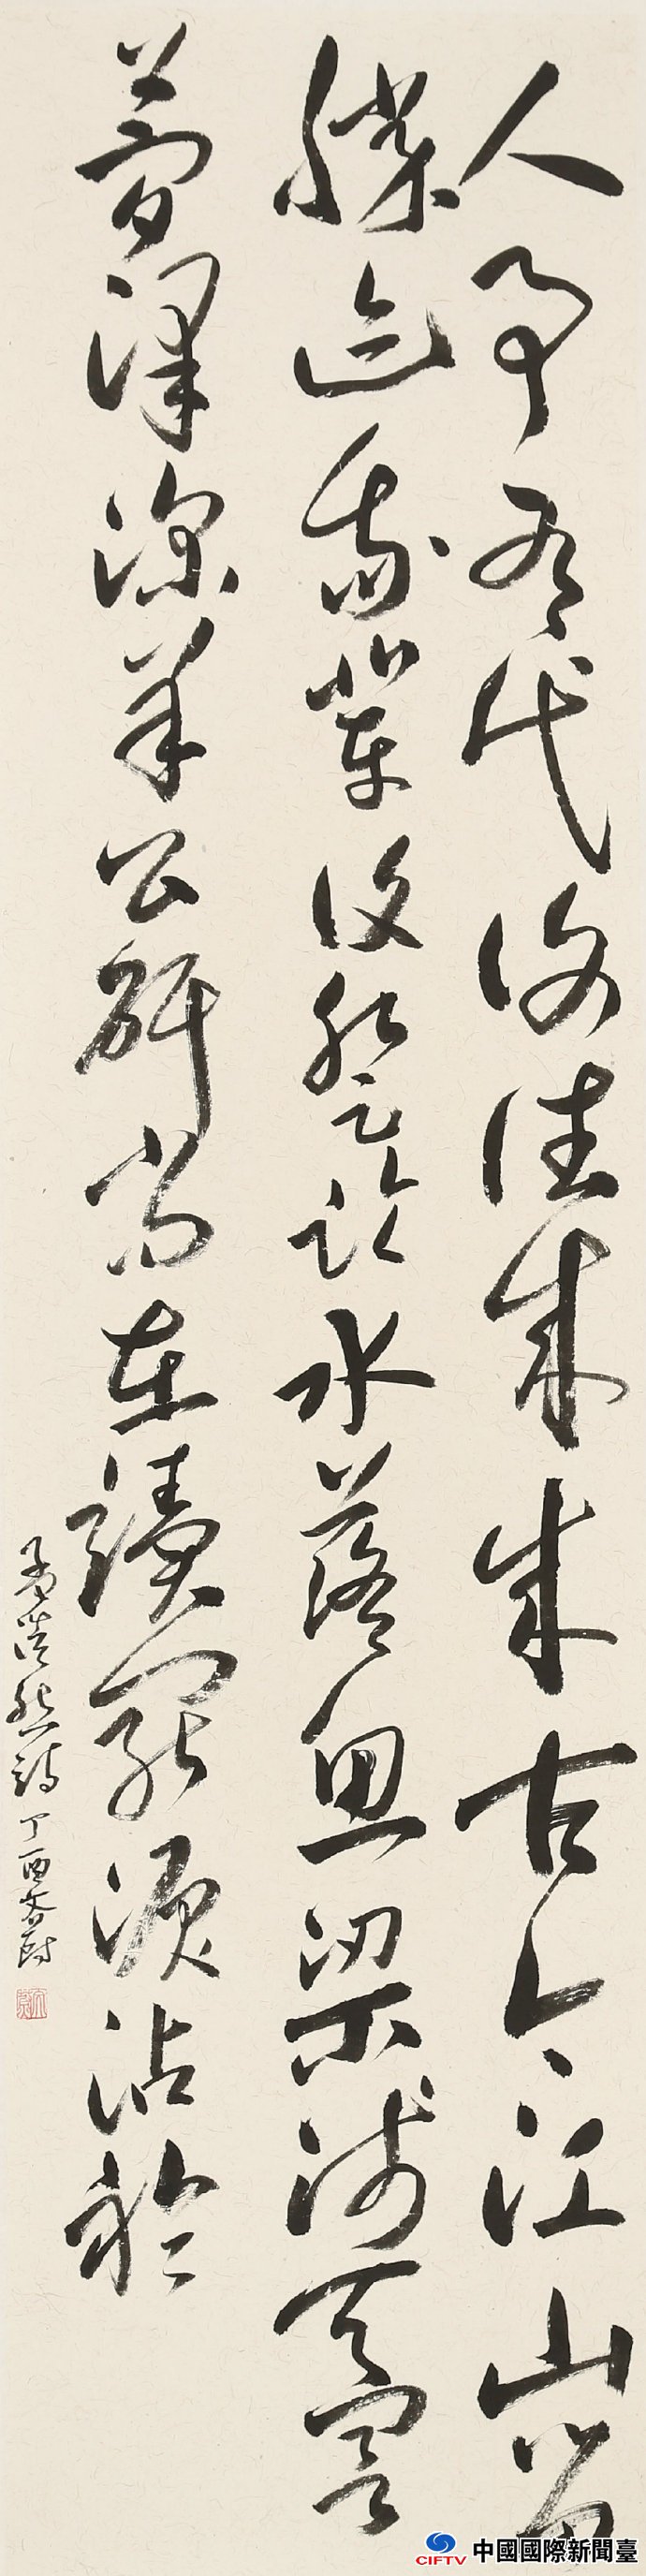 人事有代謝往来成古今江山留
勝迹我輩復登臨水落魚梁淺天寒
夢澤深羊公碑尚在讀罷淚沾襟
孟浩然詩丁酉
CIFTV 中國國際新聞臺